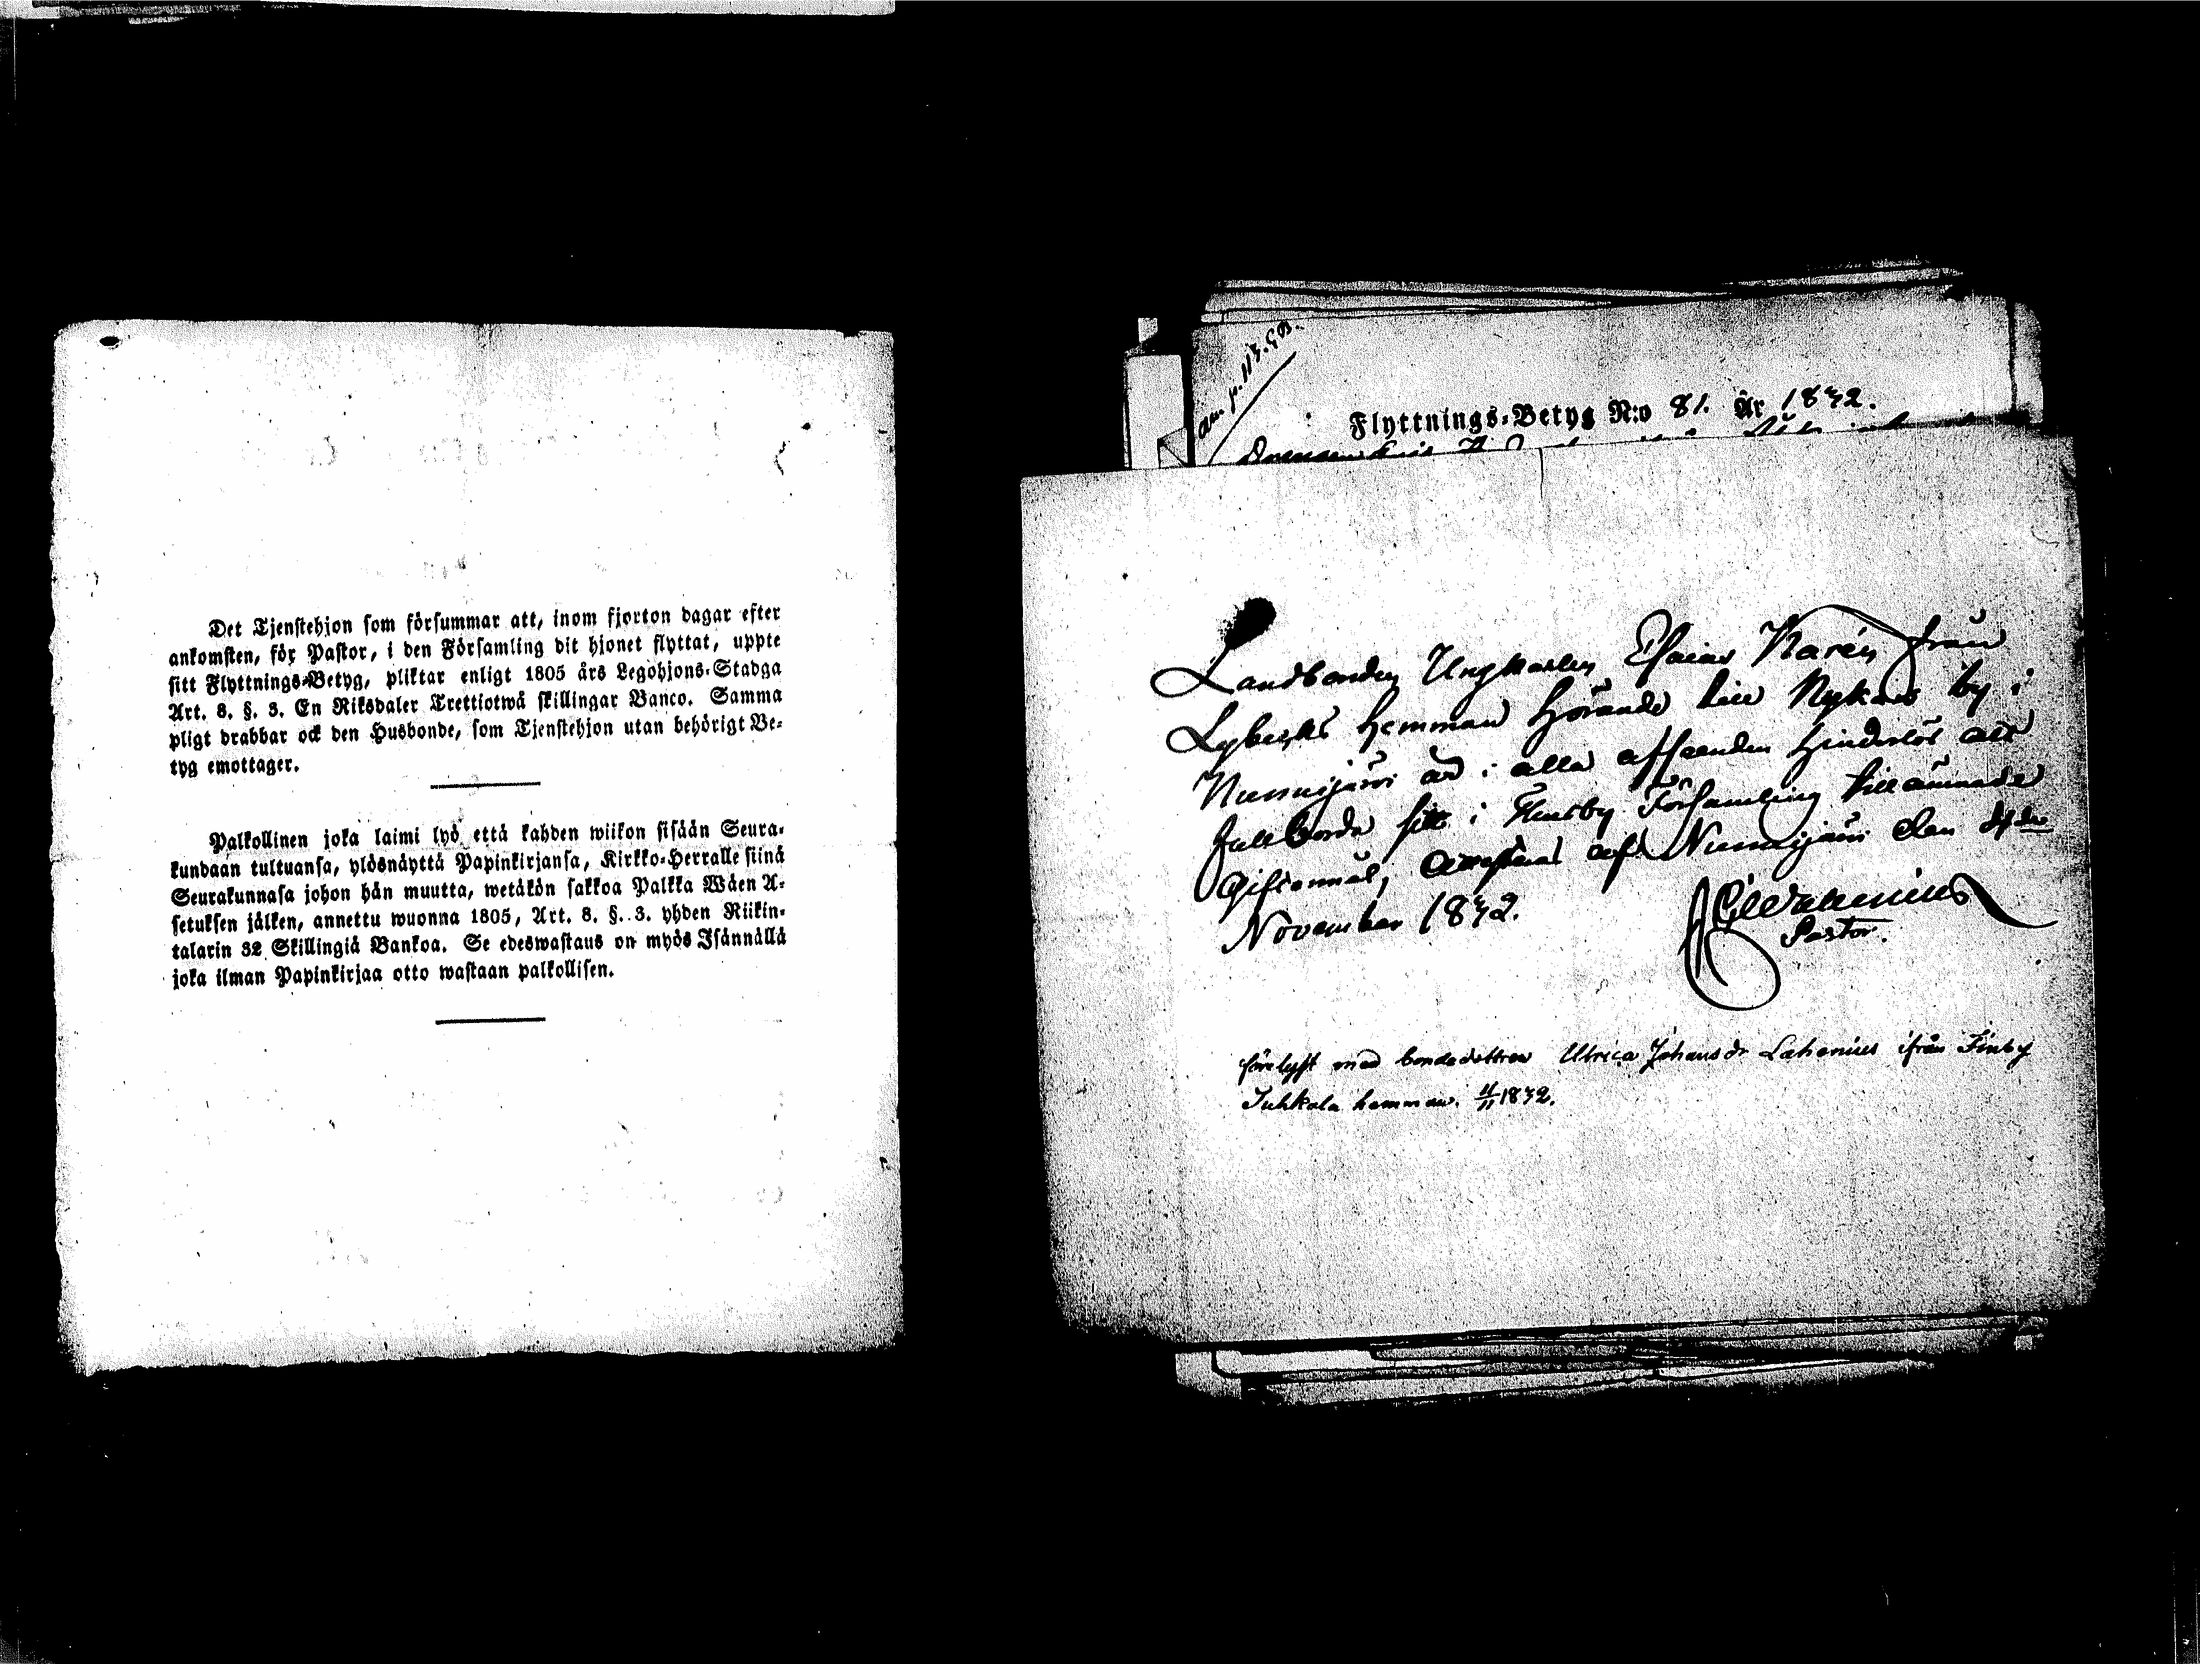 Det Tjenstehjon som försummar att, inom fjorton dagar efter
ankomsten, för Pastor, i den Församling dit hjonet flyttat, uppte
sitt Flyttnings-Betyg, pliktar enligt 1805 års Legohjons-Stadga
Art. 8. §. 3. En Riksdaler Trettiotwå skillingar Banco. Samma
pligt drabbar ock den Husbonde, som Tjenstehjon utan behörigt Be-
tyg emottager.
Palkollinen joka laimi lyö että kahden wiikon sisään Seura-
kundaan tultuansa, ylösnäyttä Papinkirjansa, Kirkko-Herralle siinä
Seurakunnasa johon hän muutta, wetäkön sakkoa Palkka Wäen A-
setuksen jälken, annettu wuonna 1805, Art. 8. §. 3. yhden Riikin-
talarin 32 Skillingiä Bankoa. Se edeswastaus on myös Isännällä
joka ilman Papinkirjaa otto wastaan palkollisen.
Flyttnings-Betyg N:o 81. År 1842.
Landbonden Ungkarlen Esaias Karén från
hemman hörande till by i
Nummijärvi är i alla afseenden hinderlös att
fullborda sitt i Församling tillämnade
Giftermål, attesteras af Nummijärvi den
November 1842.
Pastor.
förelyst med bondedottren Ulrica Johansdr Lahenius ifrån Finby
Juhkola hemman. 11/11 1842.